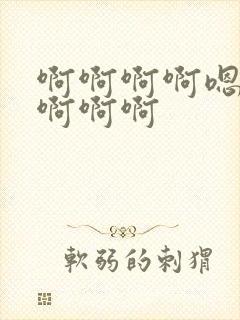 啊啊啊啊嗯
啊啊啊
軟弱的刺猬